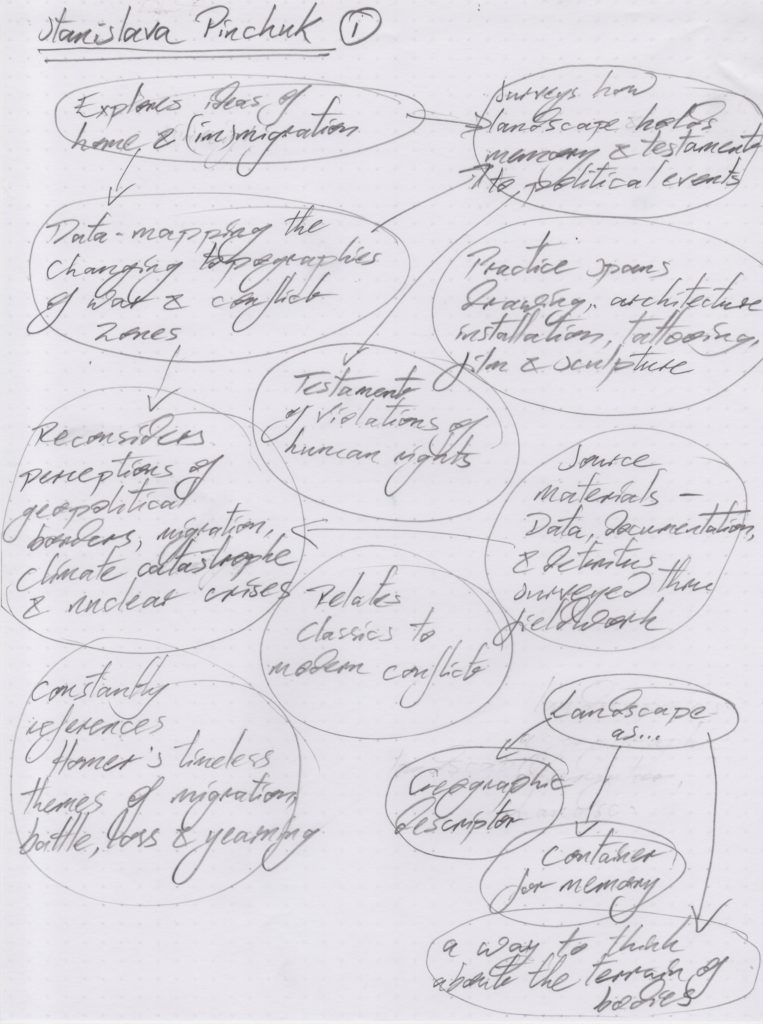 Stanislava Pinchuk 1
Explores ideas of
home & (im)migration
Surveys how
landscape holds
memory & testament
to political events
Data-mapping the
changing topographies
of war & conflict
zones
Practice spans
drawing, architecture
installation, tattooing,
film & sculpture
Testament
of violations of
human rights
Reconsiders
perceptions of
geopolitical
borders, migration,
climate catastrophe
& nuclear crises
Source
materials –
Data, documentation,
& detritus
surveyed thru
fieldwork
Relates
Classics to
modern conflict
Constantly
references
Homer's timeless
themes of migration,
battle, loss & yearning
Landscape
as...
Geographic
descriptor
Container
for memory
a way to think
about the terrain of
bodies